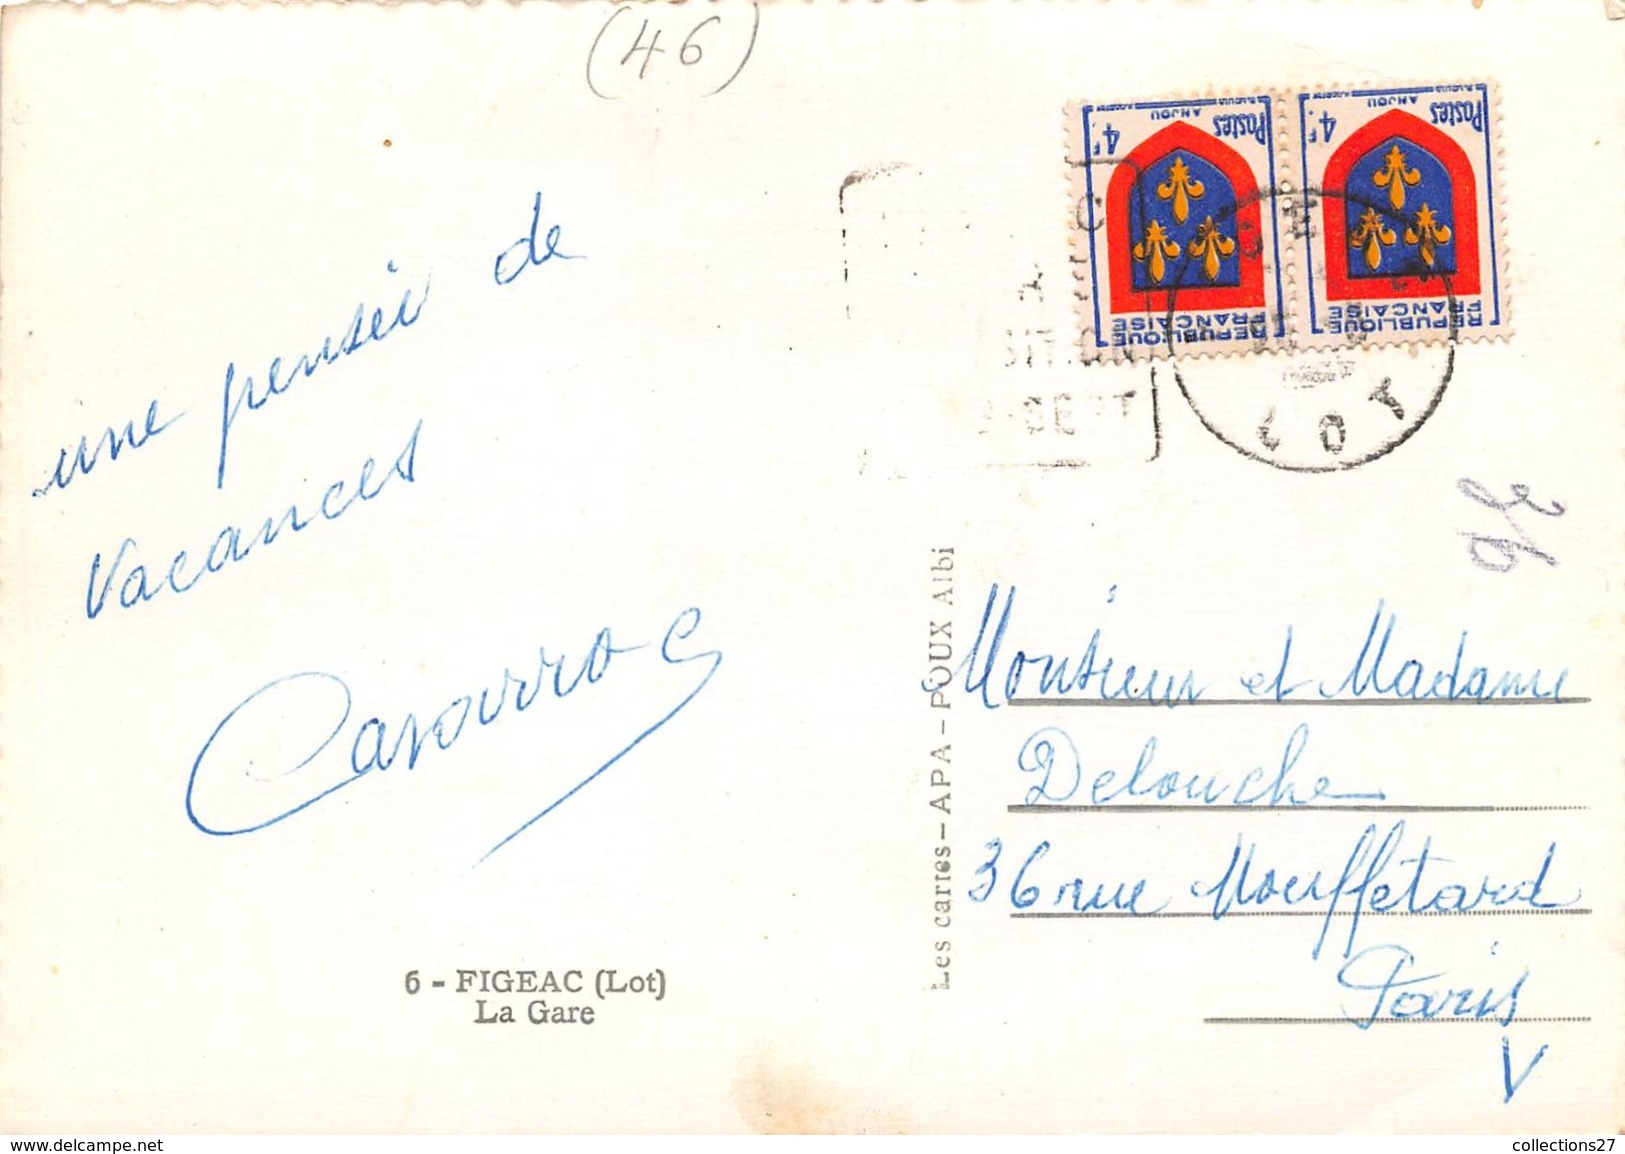 (46)
une pensée de
Vacances
6 - FIGEAC (Lot)
La Gare
Les cartes - APA - POUX Albi
Postes 4F
ANJOU
REPUBLIQUE
FRANÇAISE
Postes 4F
ANJOU
REPUBLIQUE
FRANÇAISE
LOT
Monsieur et Madame
Delouche
36 rue Mouffetard
Paris
V
collections27